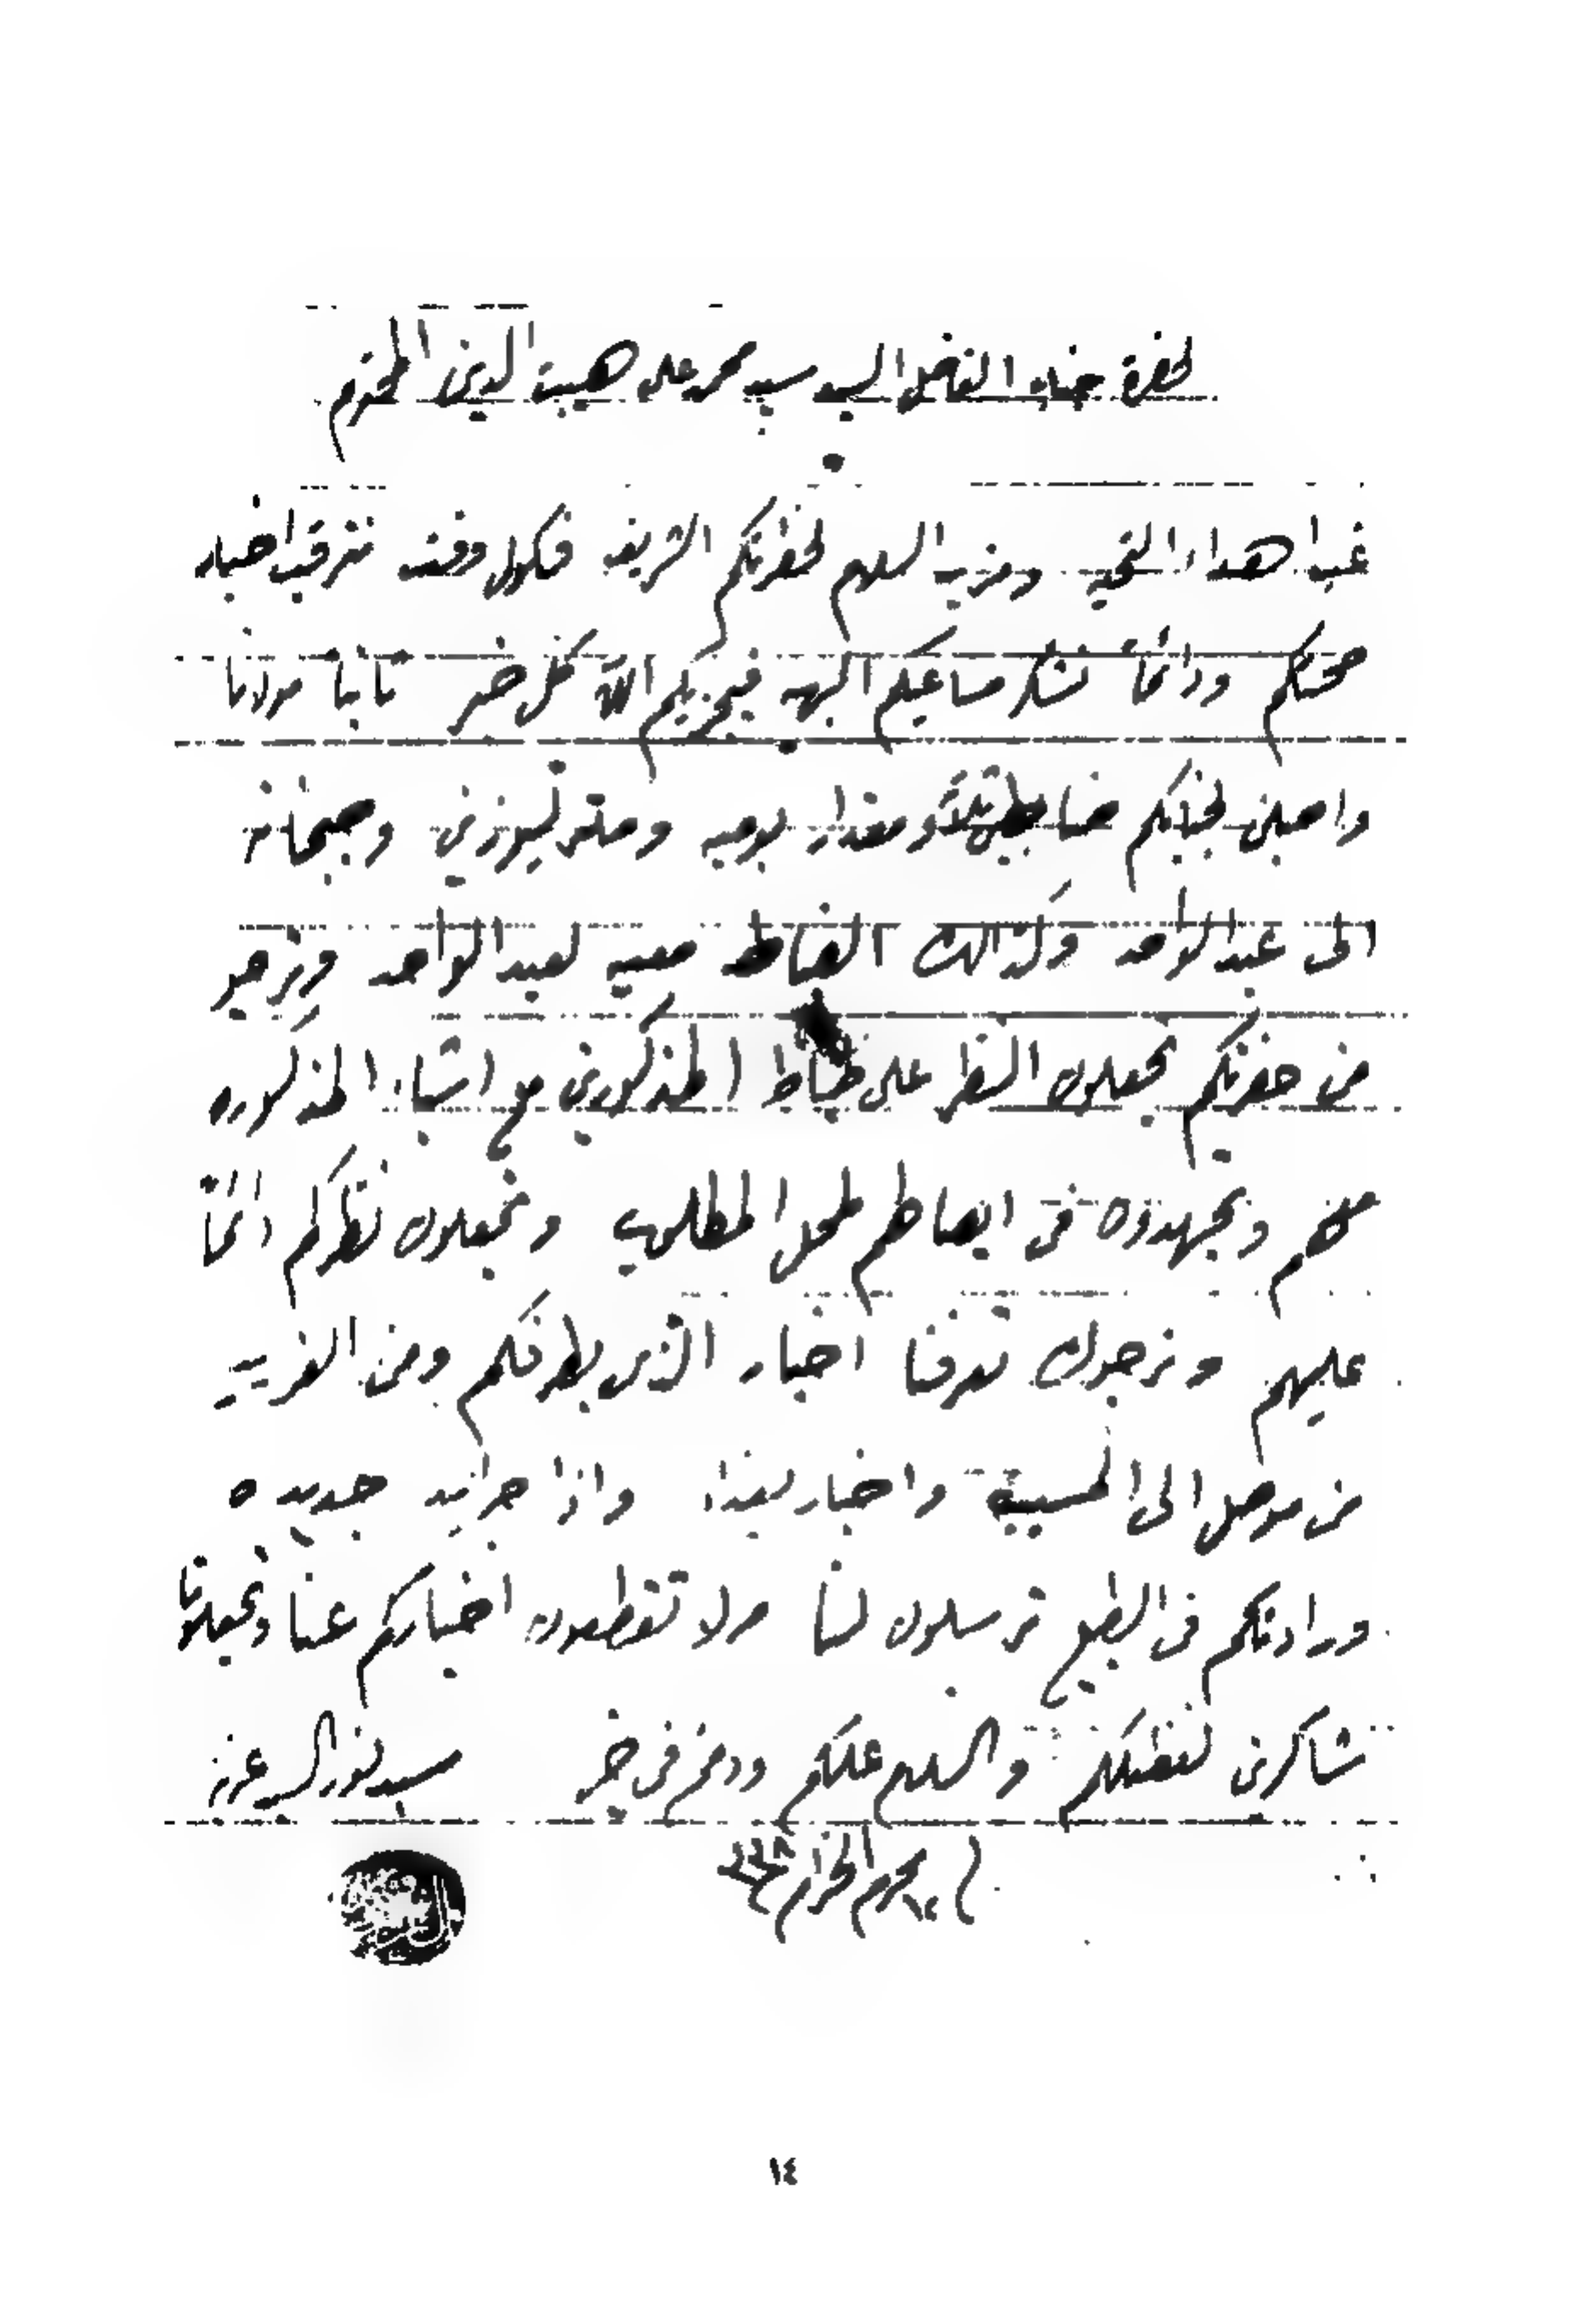 لحضرة جناب الفاضل السيد سيد محمد علي هبت الدين المحترم
غب اهداء التحيه ومزيد السلام لحضراتكم الشريفه فكل وقت نترقب اخبار
صحتكم ودائماً نشكر مساعيكم البهيه فيجزيكم الله كل خير ثانياً مولانا
واصلين لجنابكم ضابطين ثلاثة ومقدار يوميه ومتر ليوزين وجبخانه
الى عبد الواحد وكذالك الضابط معيه لعبد الواحد ونرجو
من حضرتكم تجعلون النظر على ضباط المذكورين مع اشياء المذكوره
معهم وتجهدون في ايصالهم لمحل المطلوب وتجعلون نظركم دائماً
عليهم ونرجوك تعرفنا اخبار الذي بطرفكم ومن الغربيه
من موصل الى المسيب واخبار بغداد واذا جرايد جديده
ورادتكم في الطبع ترسلون لنا ولا تقطعون اخباركم عنا وتجعلونا
شاكرين لفضلكم والسلام عليكم ودمتم في خير سيد نور السيد عزيز
محرم الحرام
١٤